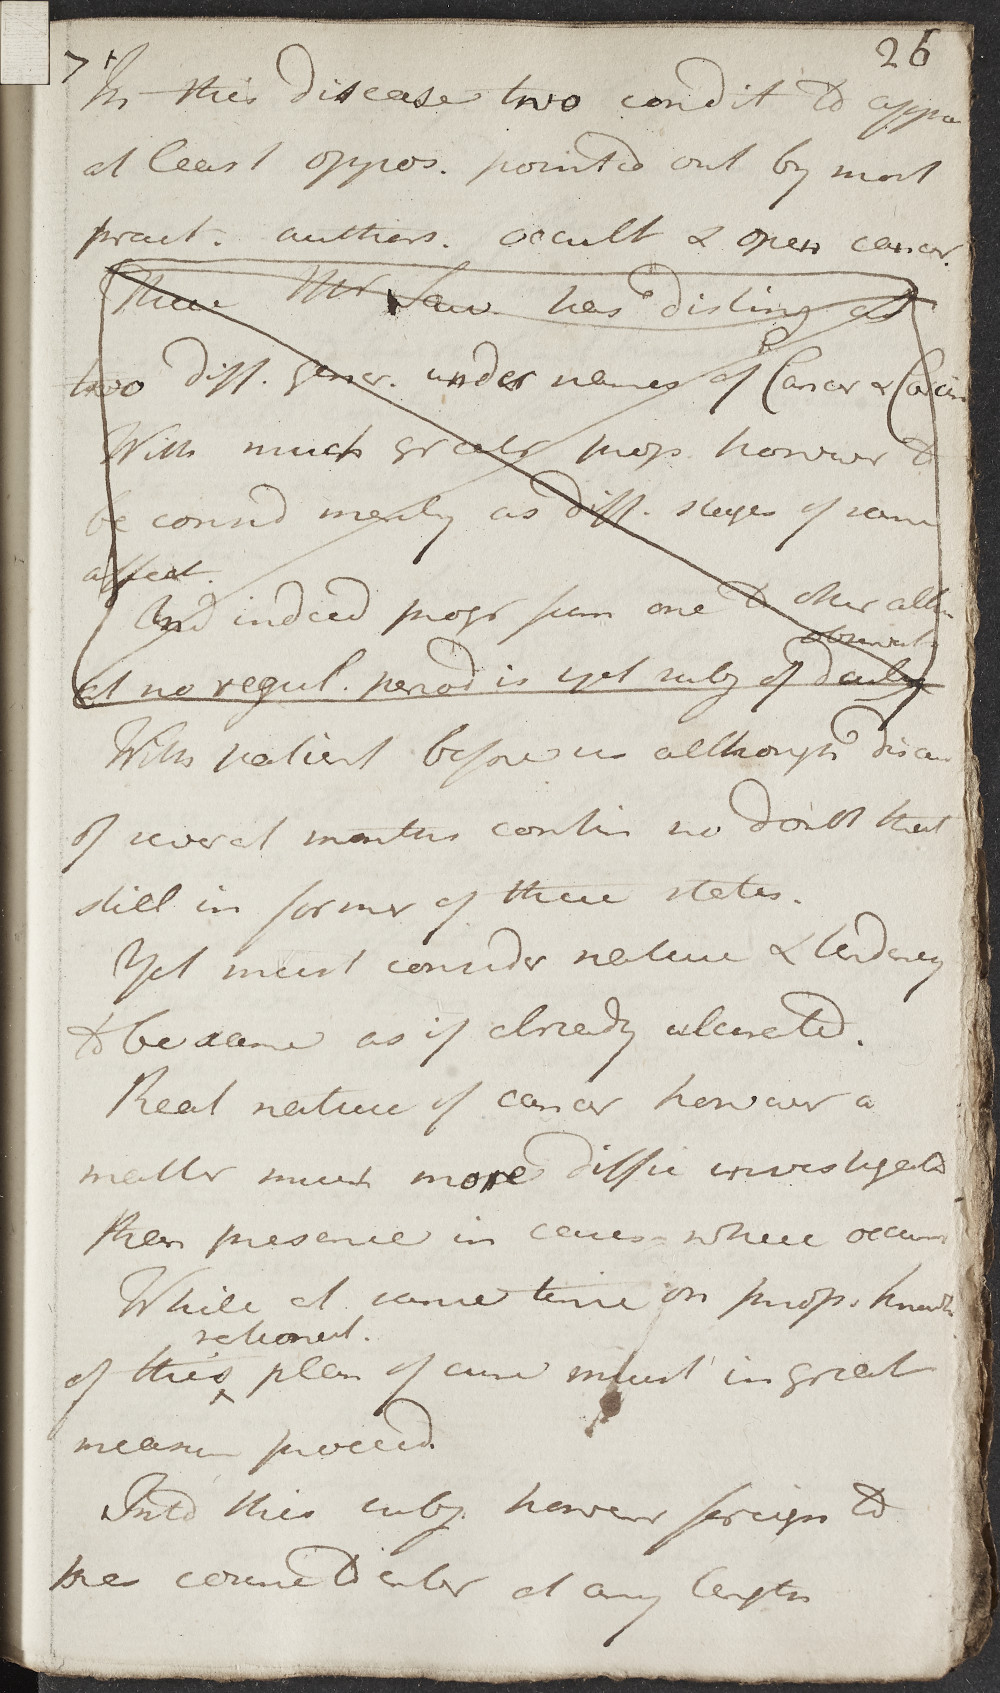 7+
26
In this disease two condit to appea
at least oppos. pointed out by most
pract. authors. occult & open cancer.
These Mr Sauv. has disting as
two diff. gener. under names of Cancer & Carcin
With much greater prop. however to
be consid merely as diff. stages of same
affect.
And indeed progr from one to other altho
observat
at no regul. period is yet subj of daily
With patient before us although disease
of several months contin no doubt that
still in former of these states.
Yet must consider nature & tendency
to be same as if already ulcerated.
Real nature of cancer however a
matter much more diffic investigated
than presence in cases where occurs
While at same time on prop. knowl
rational.
of this plan of cure must in great
measure proceed.
Into this subj. however foreign to
this course to enter at any length